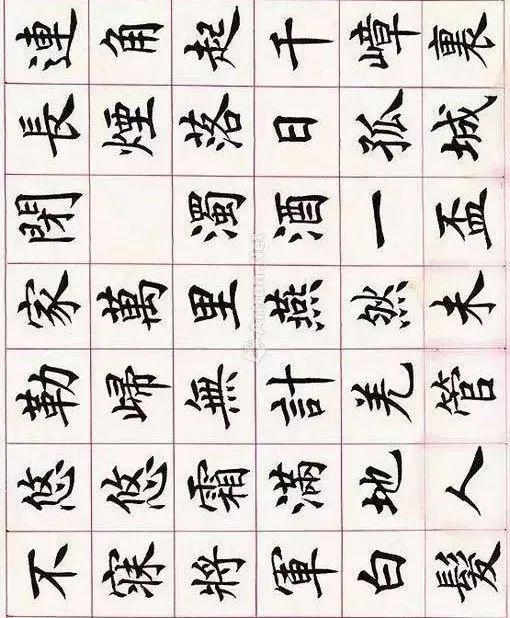 連角起千嶂裏
長煙落日孤城
閉 濁酒一盃
家萬里燕然未
勒歸無計羌管
悠悠霜滿地人
不寐將軍白髮